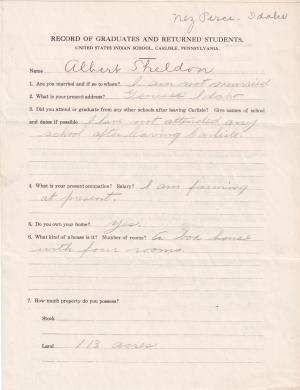 Nez Perce. Idaho
RECORD OF GRADUATES AND RETURNED STUDENTS,
UNITED STATES INDIAN SCHOOL, CARLISLE, PENNSYLVANIA.
Name Albert Sheldon
1. Are you married and if so to whom? I am not married
2. What is your present address? Genesee Idaho
3. Did you attend or graduate from any other schools after leaving Carlisle? Give names of school
and dates if possible I have not attended any
school after leaving Carlisle.
4. What is your present occupation? Salary? I am farming
at present.
5. Do you own your home? Yes.
6. What kind of a house is it? Number of rooms? a box house
with four rooms.
7. How much property do you possess?
Stock
Land 113 acres